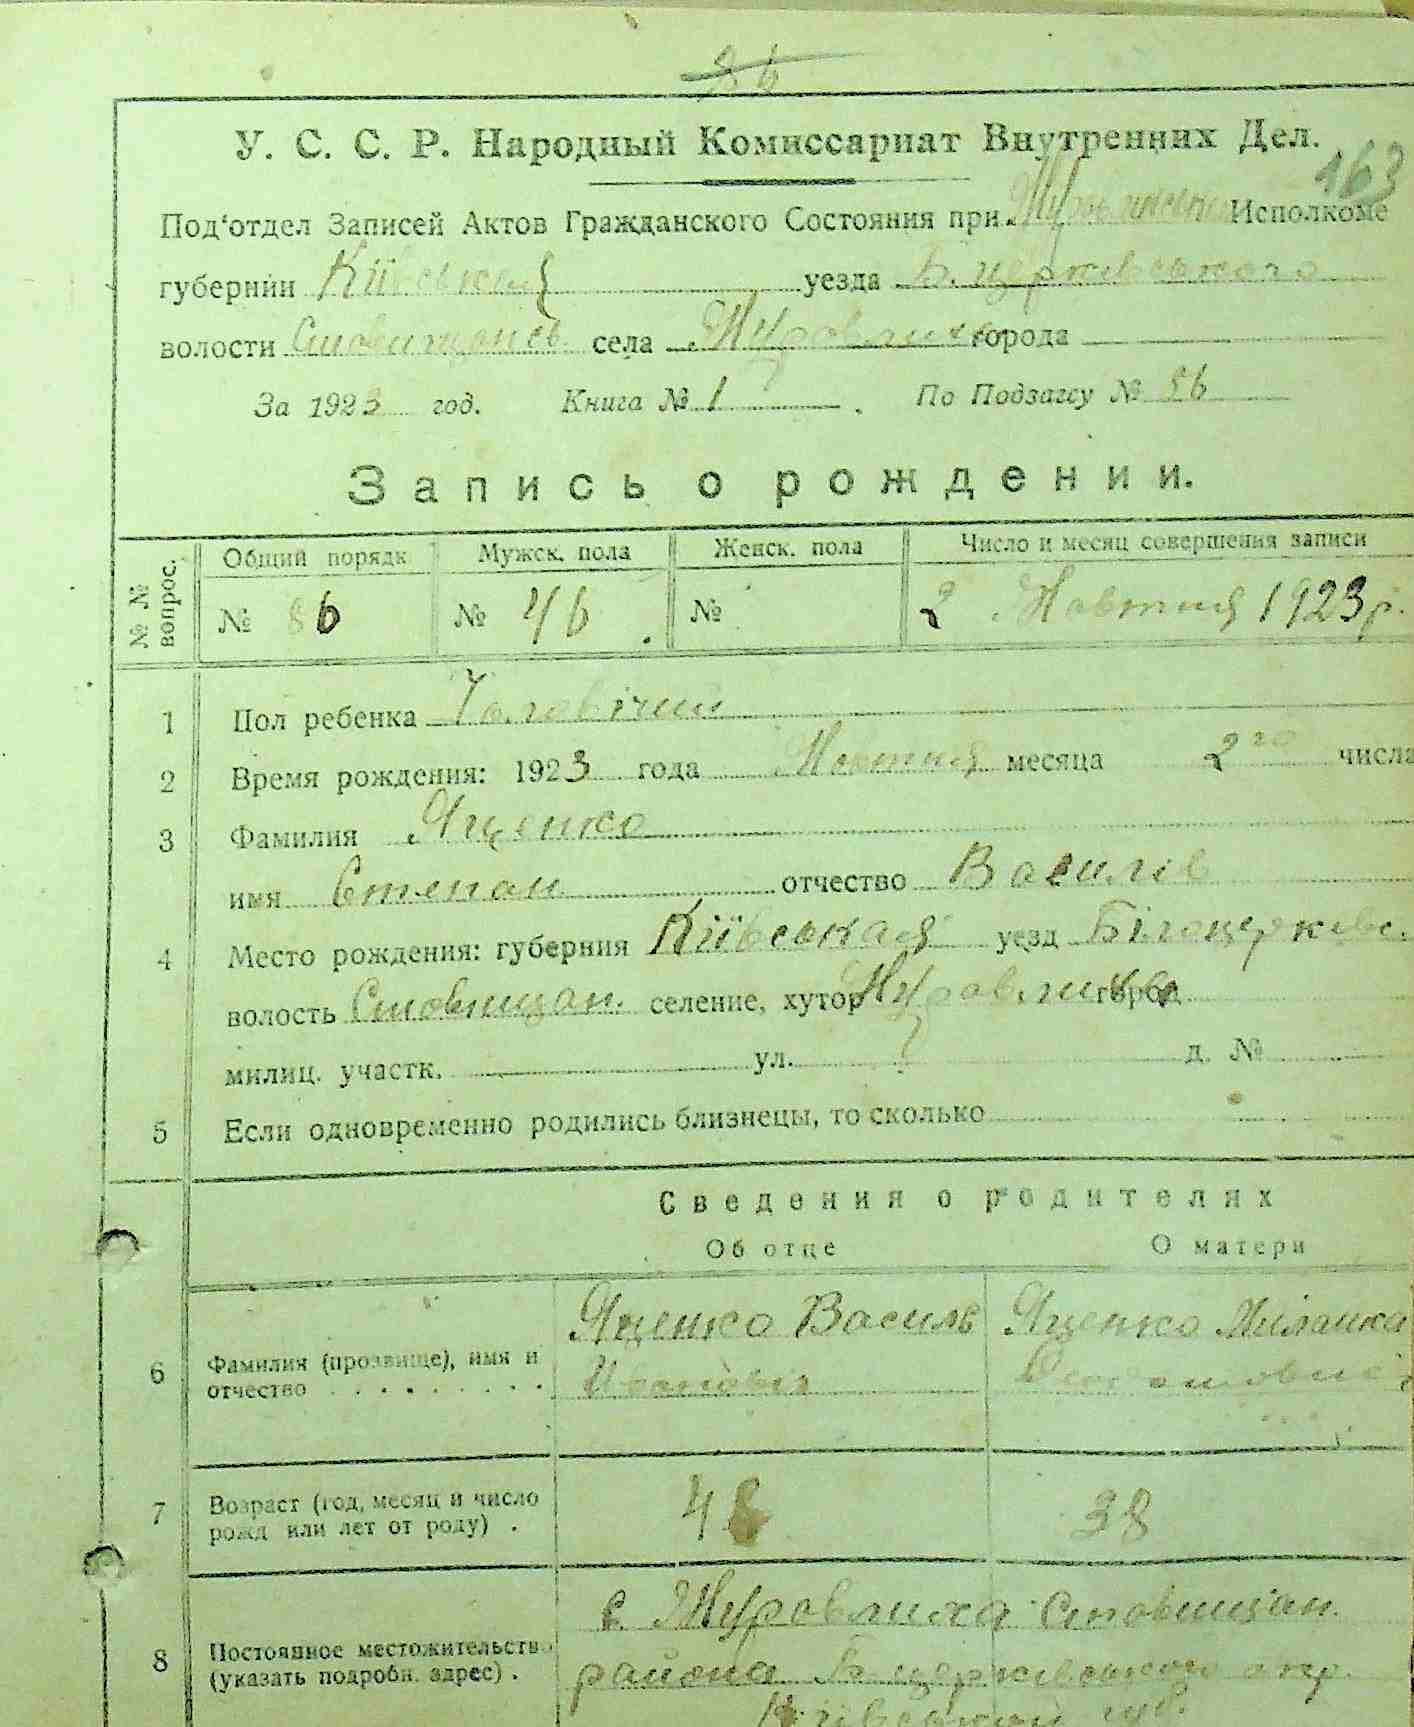 86
У. С. С. Р. Народный Комиссариат Внутренних Дел.
163
Под‘отдел Записей Актов Гражданского Состояния при Исполкоме
губернии Київськая уезда Б. церківського
волости села Журавлиха города
За 1923 год. Книга № 1. По Подзагсу № 86
Запись о рождении.
№ № вопрос. Общий порядк Мужск. пола Женск. пола Число и месяц совершения записи
№ 86 № 46. № 2 Жовтня 1923 р.
1 Пол ребенка Чоловічий
2 Время рождения: 1923 года Жовтня месяца 2го числа
3 Фамилия Яценко
имя Степан отчество Василів
4 Место рождения: губерния Київськая уезд Білоцерківс.
волость Ставищан. селение, хутор Журавлиха город
милиц. участк. ул. д. №
5 Если одновременно родились близнецы, то сколько
Сведения о родителях
Об отце О матери
6 Фамилия (прозвище), имя и отчество Яценко Василь Яценко Милашка
7 Возраст (год, месяц и число рожд или лет от роду) . 48 38
с. Журавлиха Ставищан.
8 Постоянное местожительство (указать подробн. адрес) . района Б. церківського окр.
Київської губ.